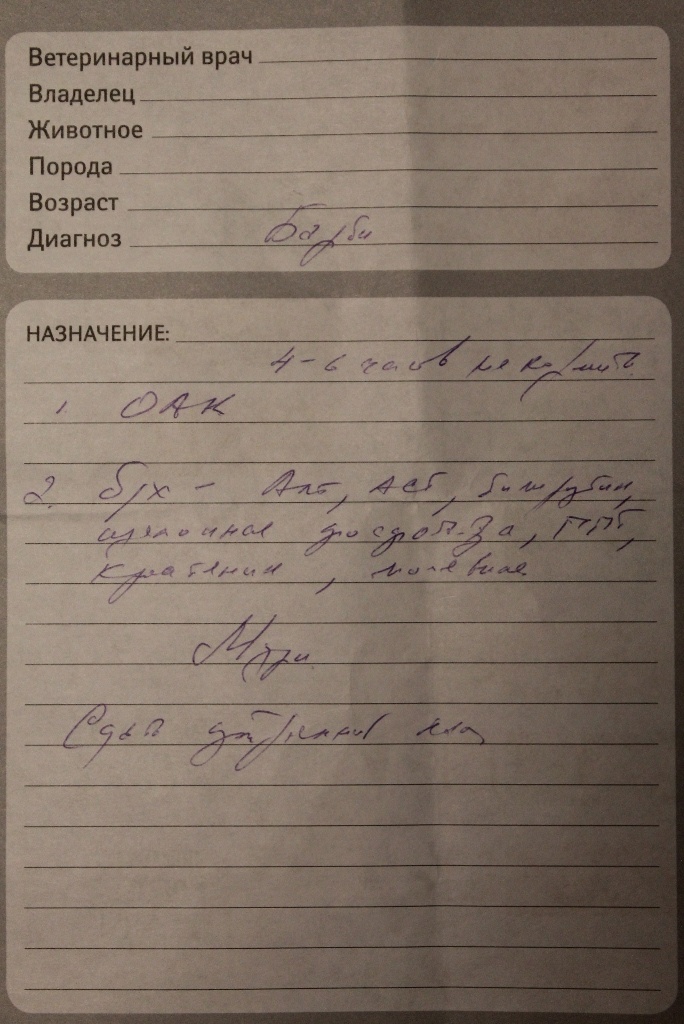 Ветеринарный врач
Владелец
Животное
Порода
Возраст
Диагноз Барби
НАЗНАЧЕНИЕ:
4-6 часов не кормить
1. ОАК
2. б/х - Алт, АСТ, билирубин,
щелочная фосфот-за, ГГТ,
креатинин, мочевина
Сдать утренний кал